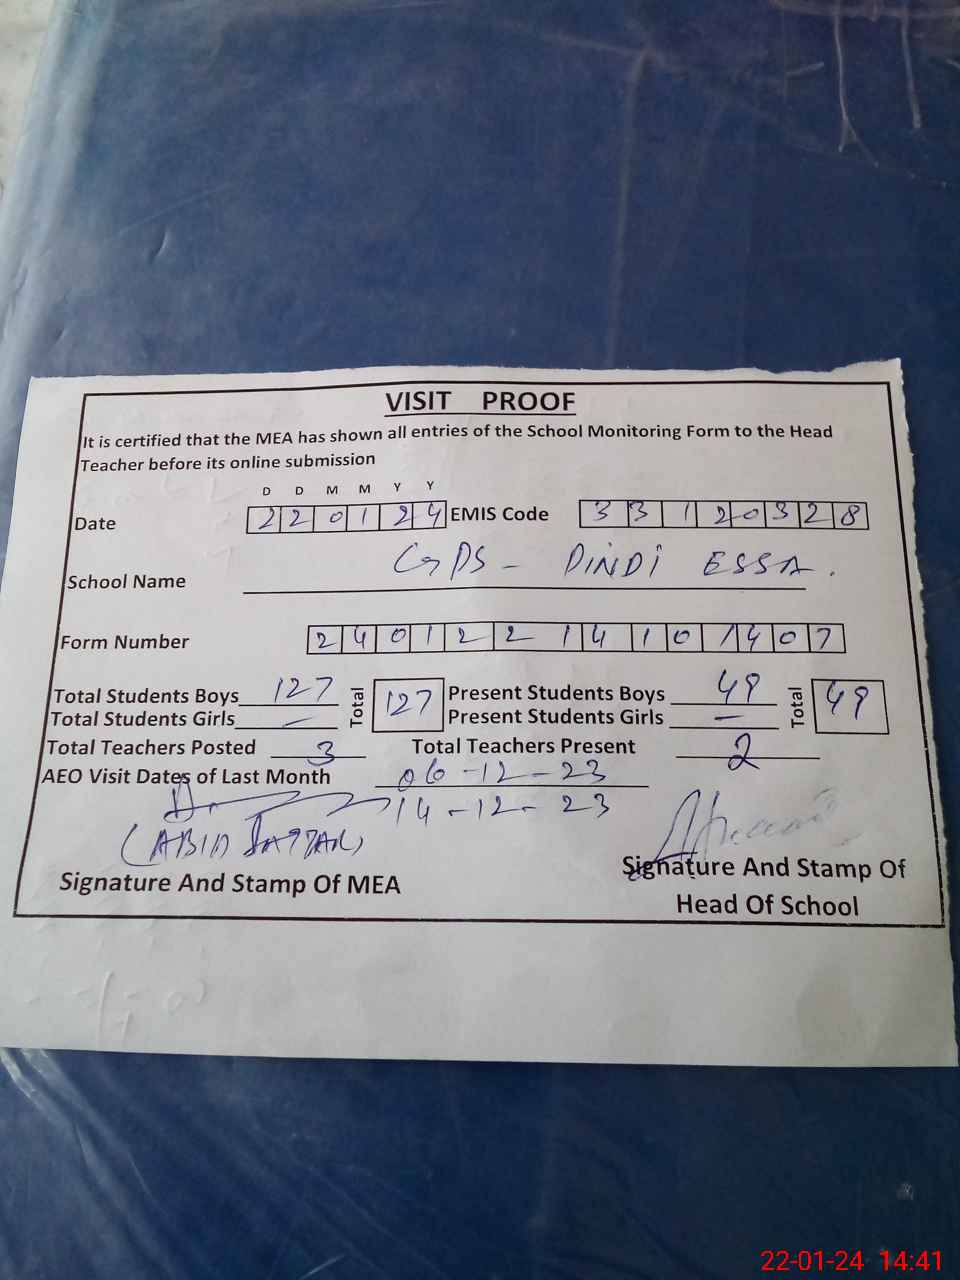 VISIT PROOF
It is certified that the MEA has shown all entries of the School Monitoring Form to the Head
Teacher before its online submission
D D M M Y Y
Date 2 2 0 1 2 4 EMIS Code 3 3 1 2 0 3 2 8
School Name GPS - PINDI ESSA.
Form Number 2 4 0 1 2 2 1 4 1 0 1 4 0 7
Total Students Boys 127 Total 127 Present Students Boys 49 Total 49
Total Students Girls — Present Students Girls —
Total Teachers Posted 3 Total Teachers Present 2
AEO Visit Dates of Last Month 06-12-23
14-12-23
(ABID SATTAR)
Signature And Stamp Of MEA
Signature And Stamp Of
Head Of School
22-01-24 14:41